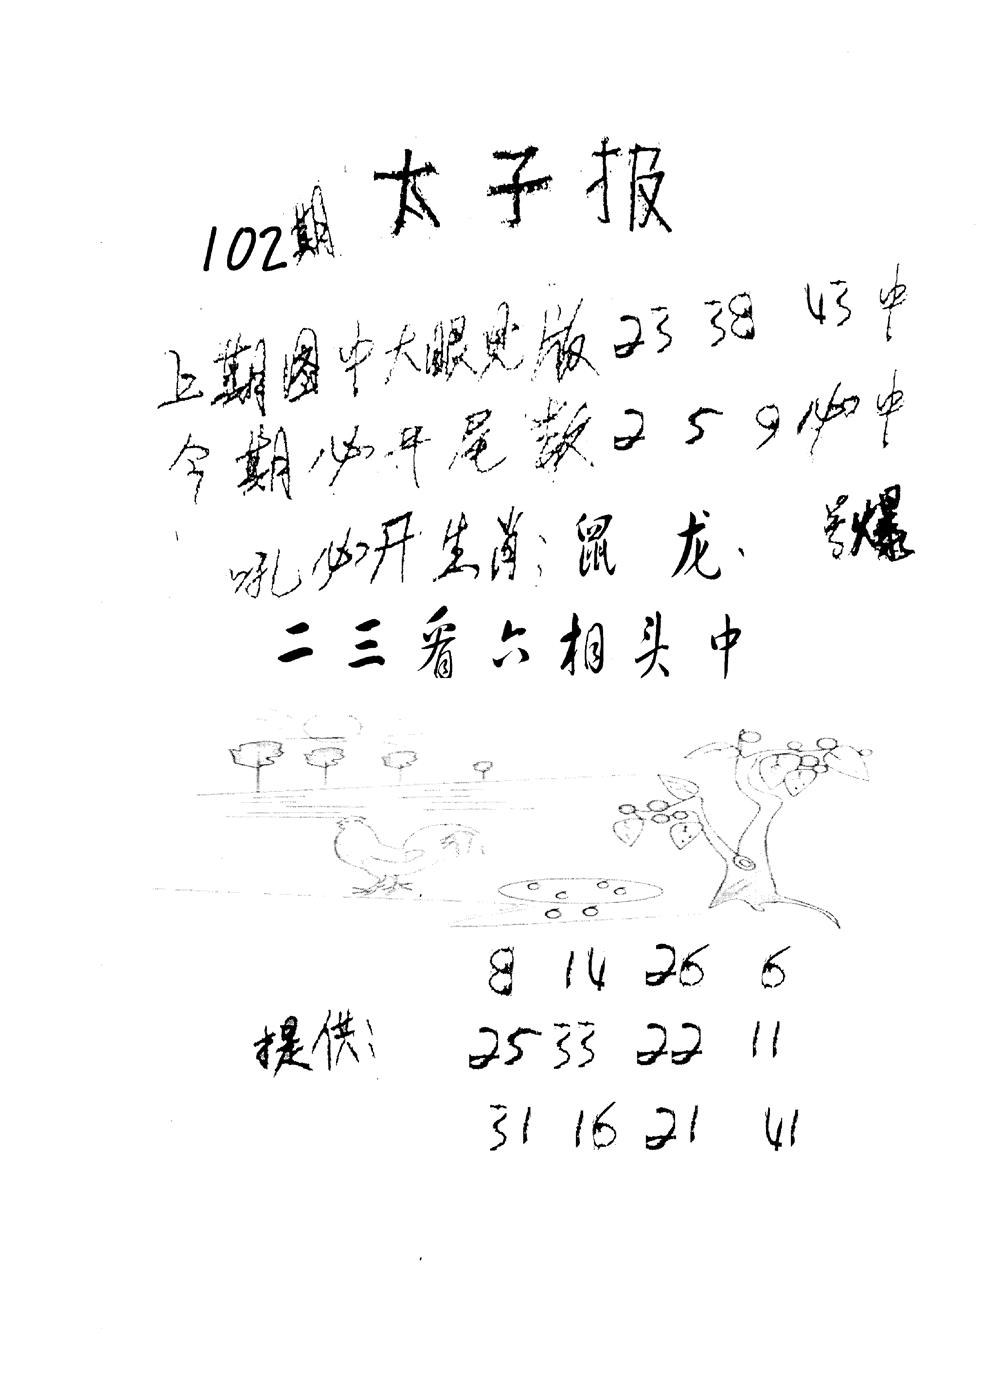 太子报
102期
上期图中大眼见版 23 38 43中
今期必开尾数 2 5 9 必中
吼必开生肖：鼠 龙、 爆
二三看六相头中
8 14 26 6
提供： 25 33 22 11
31 16 21 41